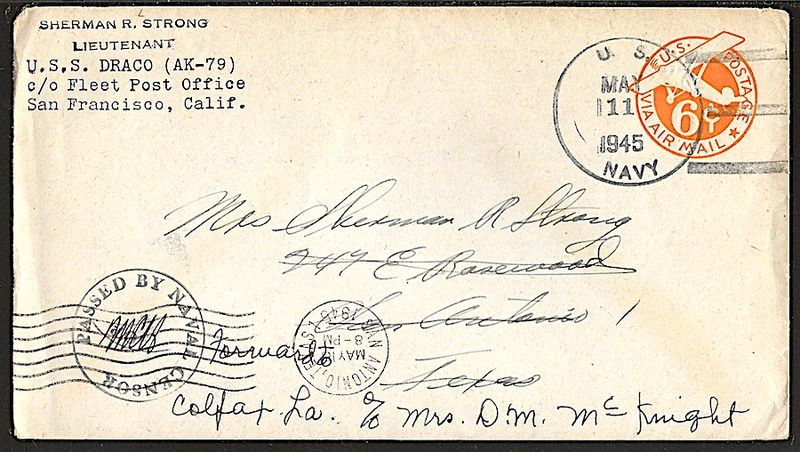 SHERMAN R. STRONG
LIEUTENANT
U.S.S. DRACO (AK-79)
c/o Fleet Post Office
San Francisco, Calif.
U. S.
MAY
11
1945
NAVY
U.S. POSTAGE
6¢
VIA AIR MAIL
Mrs Sherman R Strong
247 E Rosewood
San Antonio 1
Texas
PASSED BY NAVAL CENSOR
SAN ANTONIO, TEXAS
MAY
8-PM
1945
Forward to
Colfax La. c/o Mrs. D.M. McKnight